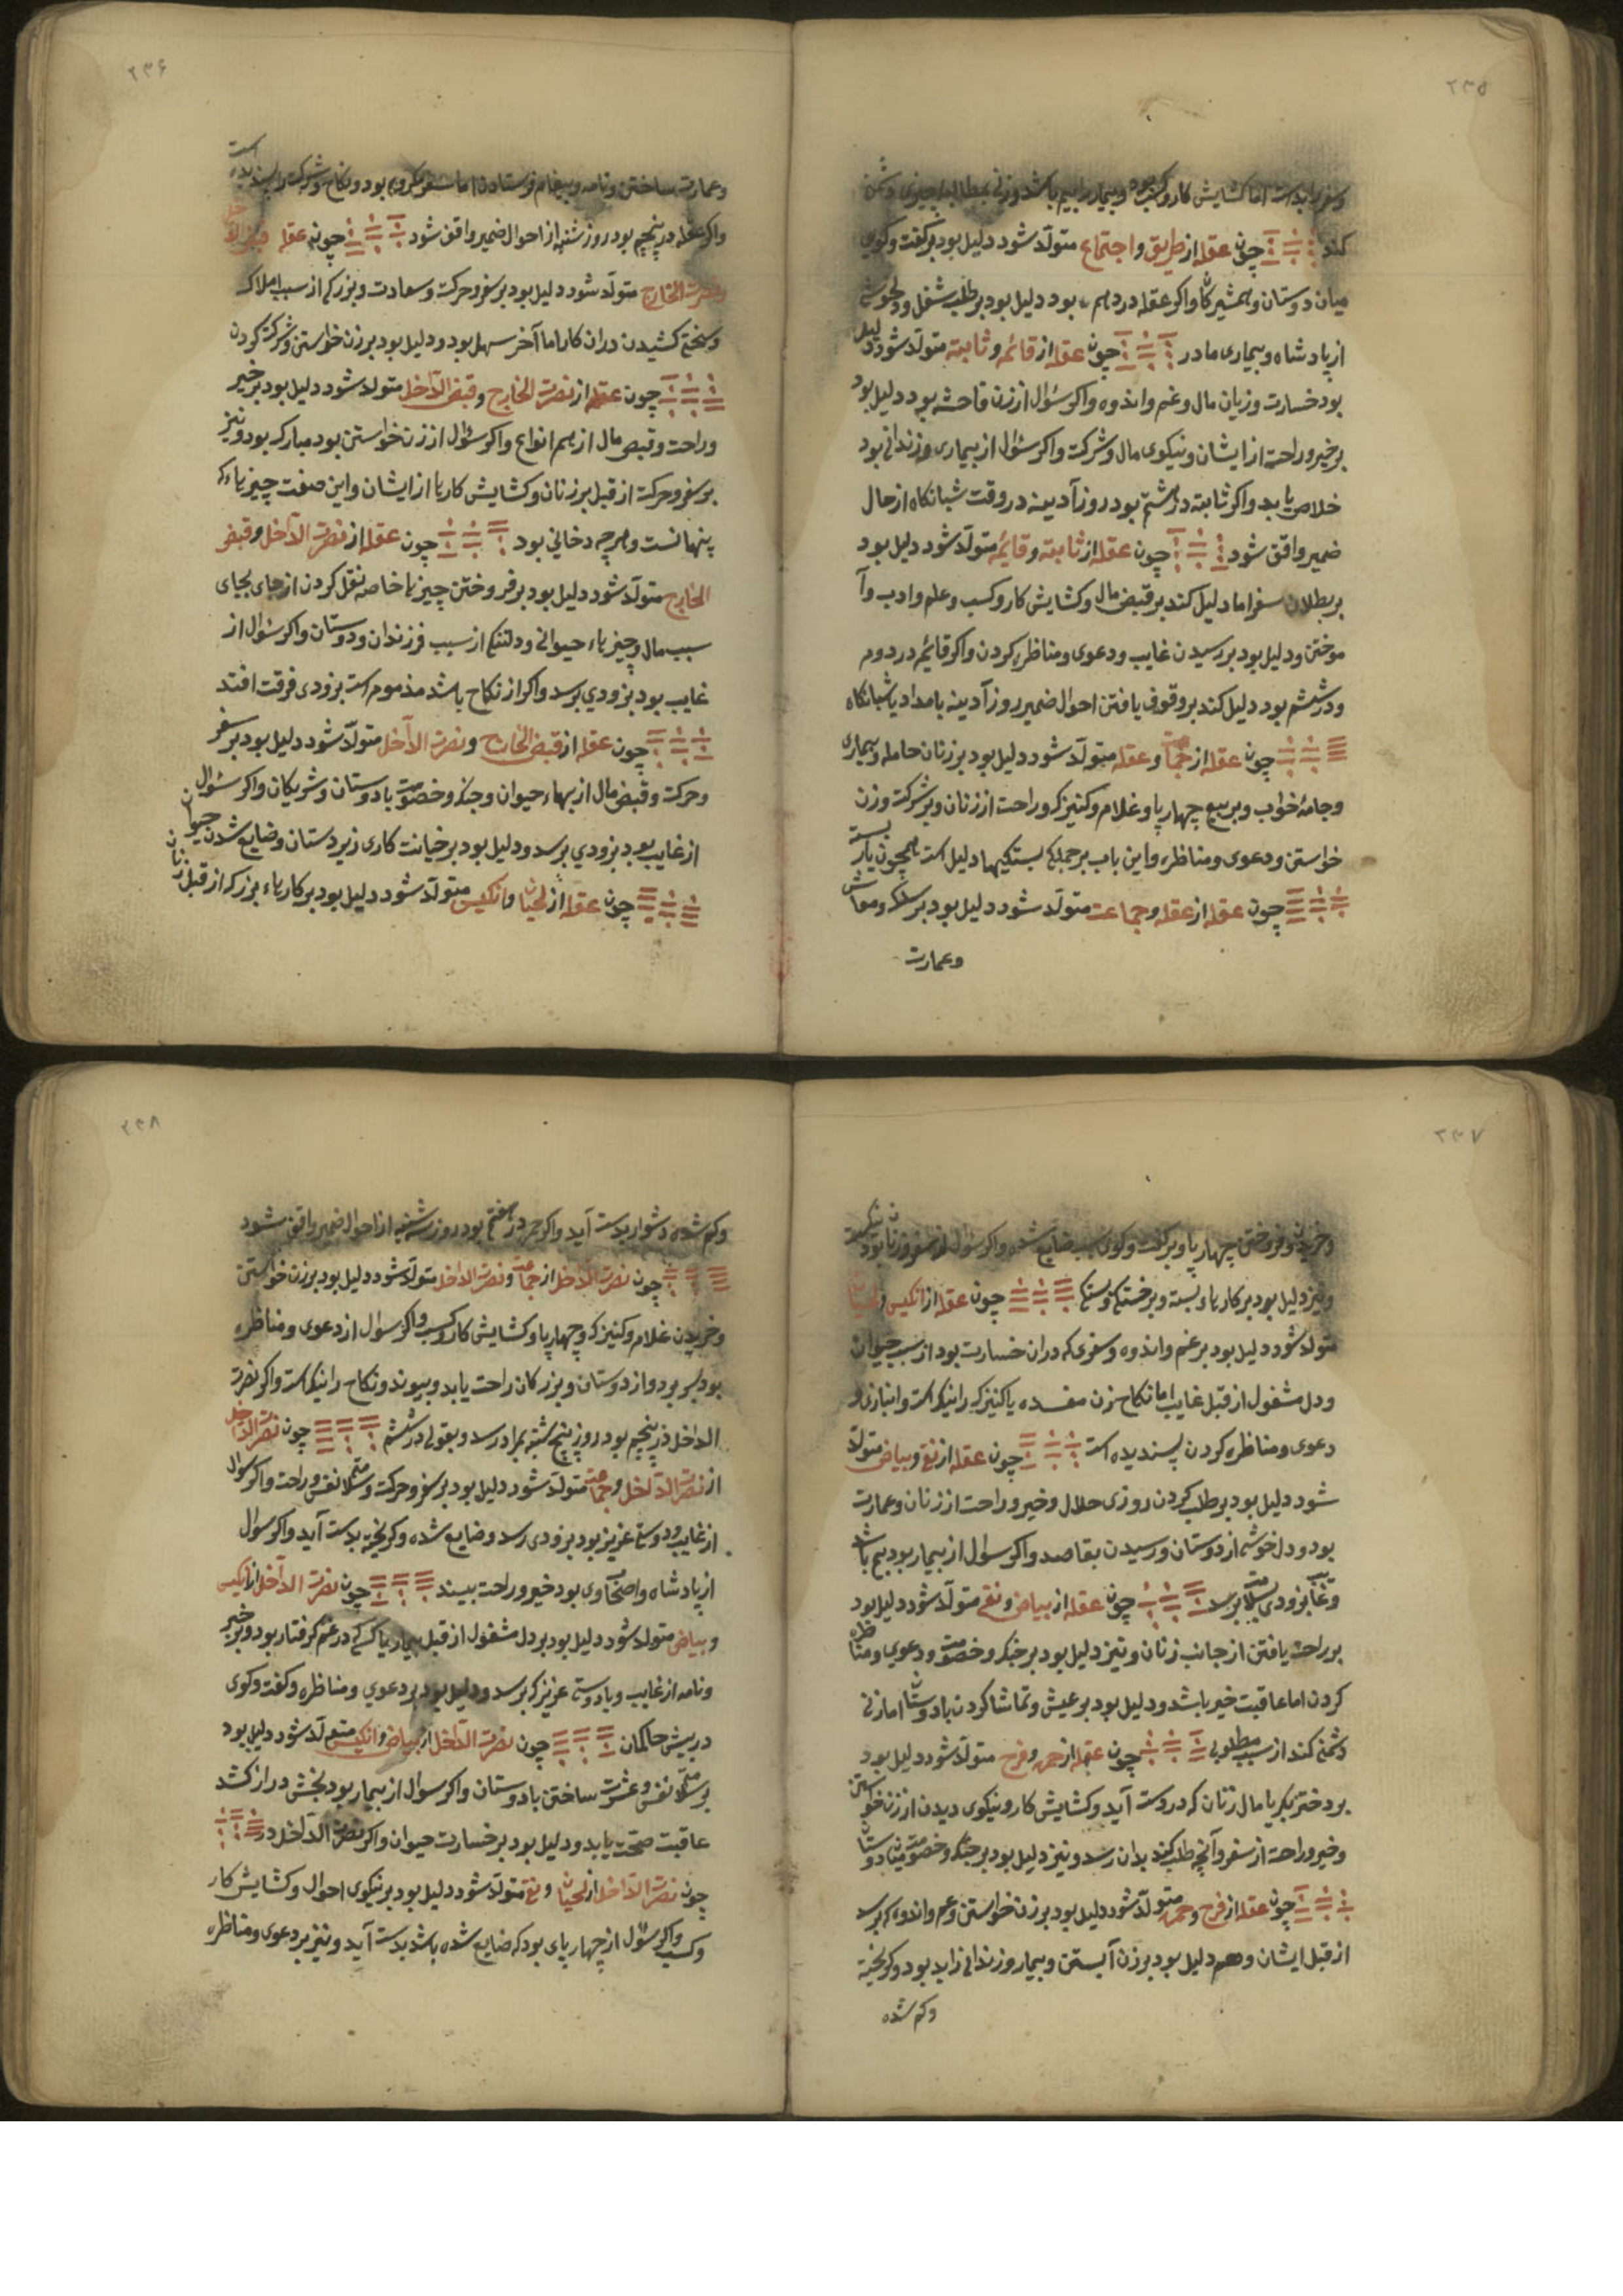 ۲۳۵
وسفر را بد است اما کشایش کار وکسب بود وبیمار را بیم باشد وزنی بمطالبه چیزی دشمن
کند چون عقله از طریق واجتماع متولد شود دلیل بود بر کفت وکوی
میان دوستان وهمشیرکان واکر عقله در دهم بود دلیل بود بر طلب شغل ودلخوشی
از پادشاه وبیماری مادر چون عقله از قائمه وثابته متولد شود دلیل
بود خسارت وزیان مال وغم واندوه واکر سؤال از زن فاحشه بود دلیل بود
بر خیر وراحت از ایشان ونیکوی مال وشرکت واکر سؤال از بیماری وزندانی بود
خلاص یابد واکر ثابته در هشتم بود روز آدینه در وقت شبانکاه از حال
ضمیر واقف شود چون عقله از ثابته وقایمه متولد شود دلیل بود
بر بطلان سفر اما دلیل کند بر قبض مال وکشایش کار وکسب وعلم وادب وآ
موختن ودلیل بود بر رسیدن غایب ودعوی ومناظره کردن واکر قایم در دوم
ودر ششم بود دلیل کند بر وقوف یافتن احوال ضمیر روز آدینه بامداد یا شبانکاه
چون عقله از جماعت وعقله متولد شود دلیل بود بر زنان حامله وبیماری
وجامهٔ خواب وبر بیع چهارپا وغلام وکنیزک وراحت از زنان وبر شرکت وزن
خواستن ودعوی ومناظره واین باب بر جملکی بستکیها دلیل است همچون بار بسته
چون عقله از عقله وجماعت متولد شود دلیل بود بر سلک ومعاش
وعمارت
۲۳۶
وعمارت ساختن ونامه وپیغام فرستادن اما سفر مکروه بود ونکاح وشرکت را پسندیده است
واکر عقله در پنجم بود روز شنبه از احوال ضمیر واقف شود چون عقله قبض الداخل
ونصرت الخارج متولد شود دلیل بود بر سفر وحرکت وسعادت وبزرکی از سبب املاک
وسختی کشیدن دران کار اما آخر سهل بود ودلیل بود بر زن خواستن وشرکت کردن
چون عقله از نصرت الخارج وقبض الداخل متولد شود دلیل بود بر خیر
وراحت وقبض مال از همه انواع واکر سؤال از زن خواستن بود مبارک بود ونیز
بر سفر وحرکت از قبل بر زنان وکشایش کارها از ایشان واین صفت چیزهاء که
پنهانست وهرچه دخانی بود چون عقله از نصرت الداخل وقبض
الخارج متولد شود دلیل بود بر فروختن چیزها خاصه نقل کردن از جای بجای
سبب مال وچیزهاء حیوانی ودلتنکی از سبب فرزندان ودوستان واکر سؤال از
غایب بود بزودی برسد واکر از نکاح باشد مذموم است بزودی فرقت افتد
چون عقله از قبض الخارج ونصرت الداخل متولد شود دلیل بود بر سفر
وحرکت وقبض مال از بهاء حیوان وجنک وخصومت با دوستان وشریکان واکر سئوال
از غایب بود بزودی برسد ودلیل بود بر خیانت کاری زیر دستان وضایع شدن حیوان
چون عقله از لحیان وانکیس متولد شود دلیل بود بر کارهاء بزرک از قبل زنان
۲۳۷
وخریدن وفروختن چهارپا وبر کفت وکوی سبب ضایع شده واکر سؤال از سفر وزنان بود نیکست
ونیز دلیل بود بر کارهاء بسته وبر خستکی وبستکی چون عقله از انکیس ولحیان
متولد شود دلیل بود بر غم واندوه وسفری که دران خسارت بود از سبب حیوان
ودل مشغول از قبل غایب اما نکاح زن مفسده یا کنیزک را نیک است وانبازی و
دعوی ومناظره کردن پسندیده است چون عقله از نقی وبیاض متولد
شود دلیل بود بر طلب کردن روزی حلال وخیر وراحت از زنان وعمارت
بود ودلخوشی از دوستان ورسیدن بقاصد واکر سوال از بیمار بود بیم باشد
وغایب بزودی بسلامت برسد چون عقله از بیاض ونقی متولد شود دلیل بود
بر راحت یافتن از جانب زنان ونیز دلیل بود بر جنک وخصومت ودعوی ومناظره
کردن اما عاقبت خیر باشد ودلیل بود بر عیش وتماشا کردن با دوستان اما زنی
دشمنی کند از سبب مطلوبی چون عقله از حمره وفرح متولد شود دلیل بود
بر دختر بکر یا مال زنان که در دست آید وکشایش کار ونیکوی دیدن از زن خواستن
وخیر وراحت از سفر وآنچه طلب کند بدان رسد ونیز دلیل بود بر جنک وخصومت میان دوستان
چون عقله از فرح وحمره متولد شود دلیل بود بر زن خواستن وغم واندوه که برسد
از قبل ایشان وهم دلیل بود بر زن آبستن وبیمار وزندانی زاید بود وکریخته
وکم شده
۲۳۸
وکم شده دشوار بدست آید واکر حمره در هفتم بود روز سه شنبه از احوال ضمیر واقف شود
چون نصرت الداخل از جماعت ونصرت الداخل متولد شود دلیل بود بر زن خواستن
وخریدن غلام وکنیزک وچهارپا وکشایش کار وکسب واکر سوال از دعوی ومناظره
بود بر بود واز دوستان وبزرکان راحت یابد وپیوند ونکاح را نیک است واکر نصرت
الداخل در پنجم بود روز پنج شنبه بمراد رسد وبقولی در ششم چون نصرت الداخل
از نصرت الداخل وجماعت متولد شود دلیل بود بر سفر وحرکت وسلامتی نفس وراحت واکر سوال
از غایب ودوستی عزیز بود بزودی رسد وضایع شده وکریخته بدست آید واکر سوال
از پادشاه واصحاب وی بود خیر وراحت بیند چون نصرت الداخل از انکیس
وبیاض متولد شود دلیل بود بر دل مشغول از قبل بیمار یا کسی که در غم کرفتار بود وبر خبر
ونامه از غایب ویا دوستی عزیز که برسد ودلیل بود بر دعوی ومناظره وکفت وکوی
در پیش حاکمان چون نصرت الداخل از بیاض وانکیس متولد شود دلیل بود
بر سلامتی نفس وعشرت ساختن با دوستان واکر سوال از بیمار بود بخشی دراز کشد
عاقبت صحت یابد ودلیل بود بر خسارت حیوان واکر نصرت الداخل در
چون نصرت الداخل از لحیان ونقی متولد شود دلیل بود بر نیکوی احوال وکشایش کار
وکسب واکر سؤال از چهارپای بود که ضایع شده باشد بدست آید ونیز بر دعوی ومناظره